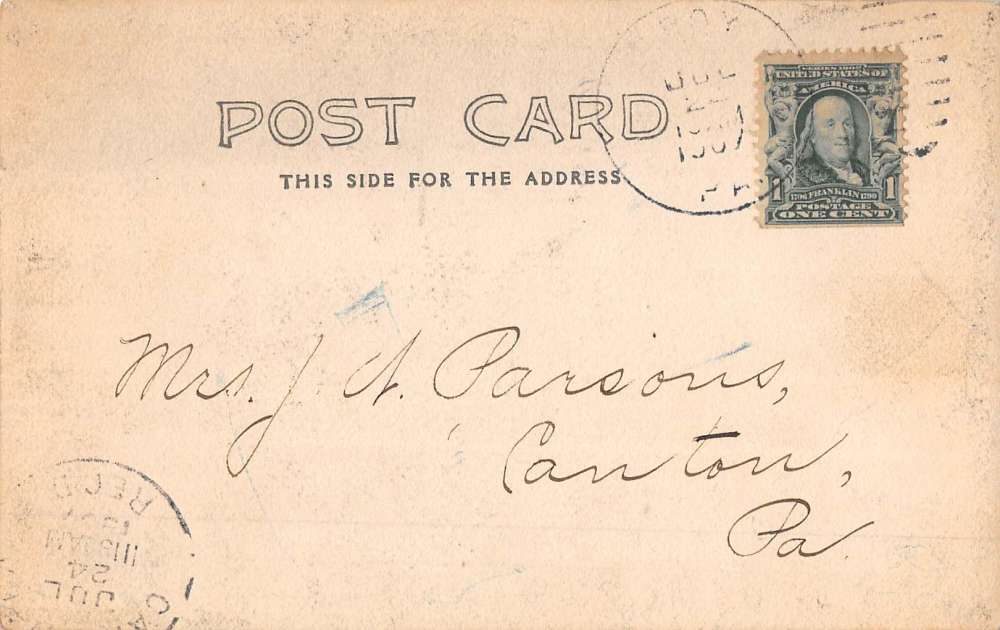 POST CARD
THIS SIDE FOR THE ADDRESS
JUL
1907
PA
SERIES 1902
UNITED STATES OF
AMERICA
1 1706 FRANKLIN 1790 1
POSTAGE
ONE CENT
Mrs. J. N. Parsons,
Canton,
Pa.
REC'D
1907
11 19 AM
24
JUL
CA